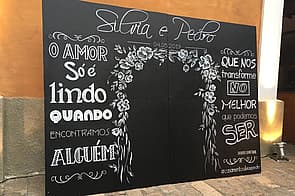 Silvia e Pedro
O AMOR
Só é
lindo
QUANDO
ENCONTRAMOS
ALGUÉM
QUE NOS
transforme
NO
MELHOR
que podemos
SER